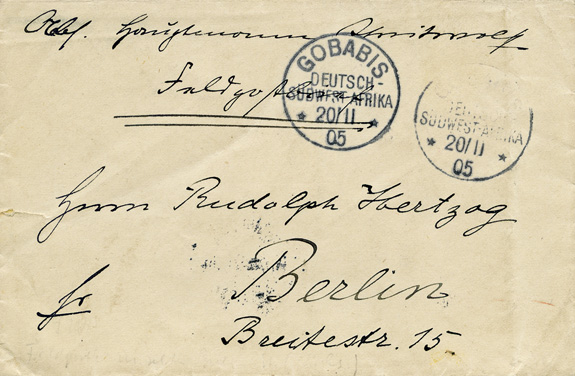 Abs. Hauptmann
Feldpost
GOBABIS
DEUTSCH-
SÜDWEST-AFRIKA
20/11
05
SÜDWEST-AFRIKA
20/11
05
Herrn Rudolph Hertzog
fr
Berlin
Breitestr. 15